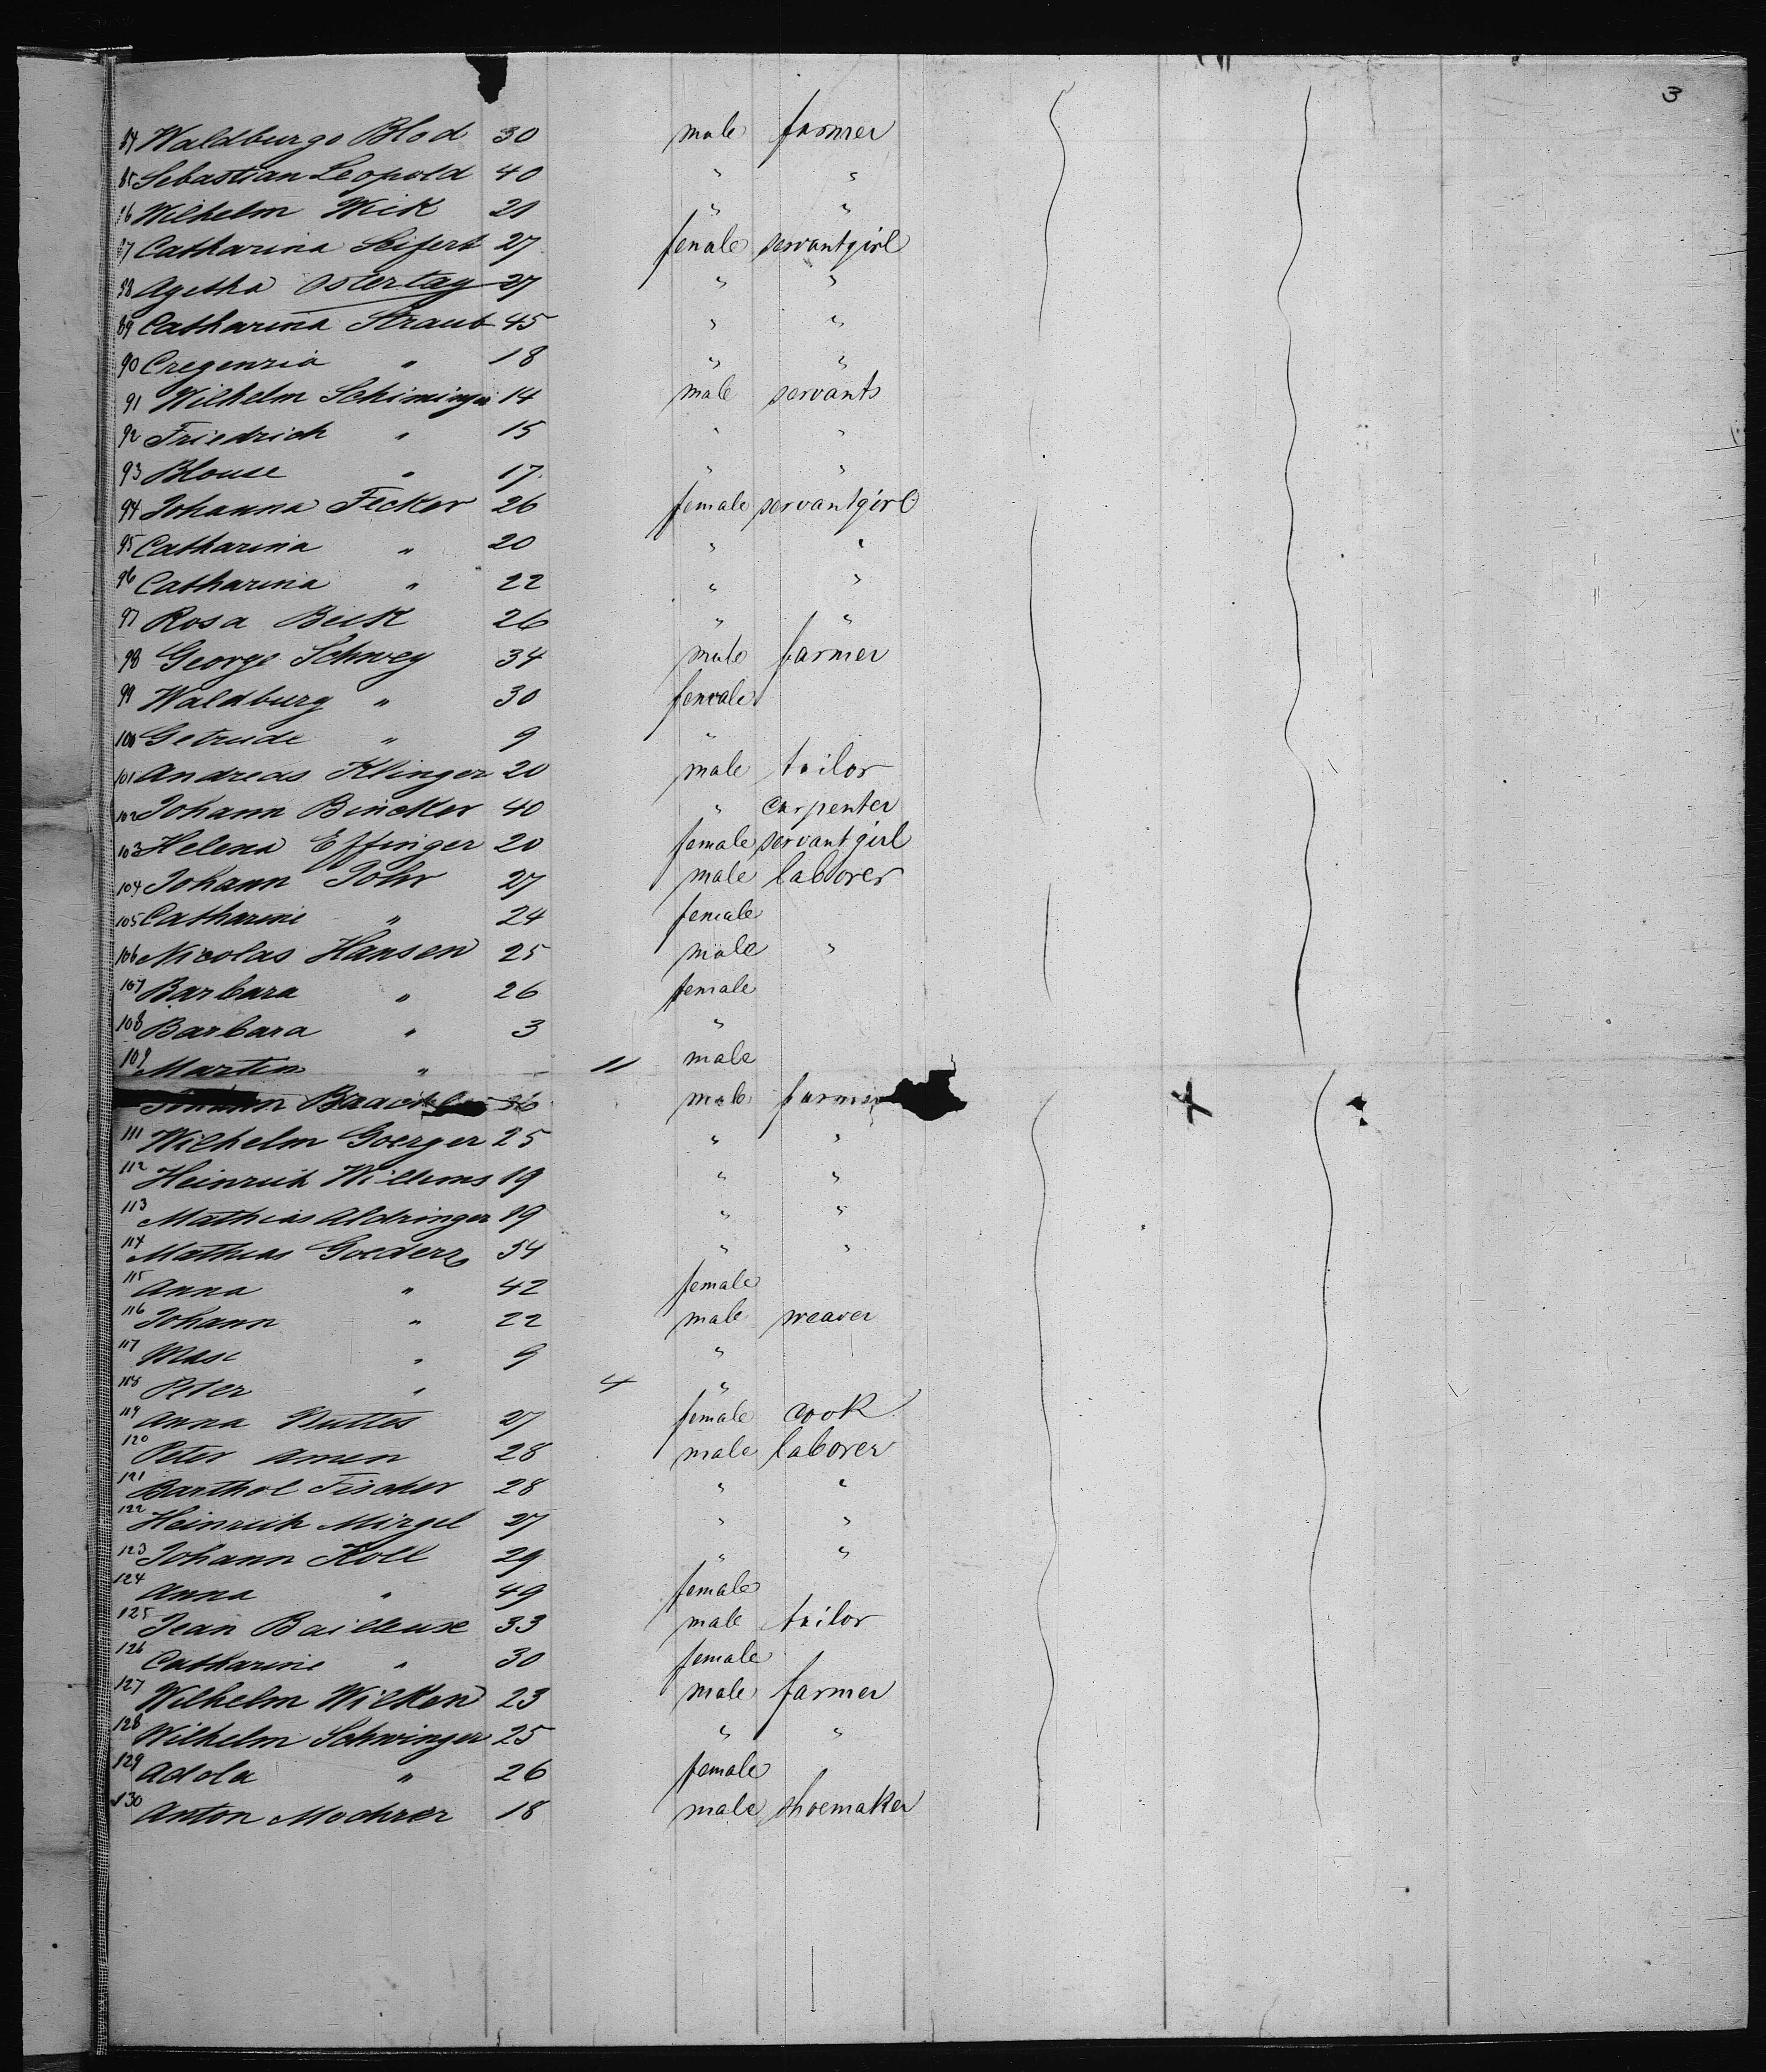 3
84 Waldburgo Blod 30 male farmer
85 Sebastian Leopold 40 " "
86 Wilhelm Wick 21 " "
87 Catharina Seifert 27 female servantgirl
88 Agetha Ostertag 27 " "
89 Catharina Straub 45 " "
90 Cregenzia " 18 " "
91 Wilhelm Schiminger 14 male servants
92 Friedrich " 15 " "
93 Blouse " 17 " "
94 Johanna Fecker 26 female servantgirl
95 Catharina " 20 " "
96 Catharina " 22 " "
97 Rosa Beck 26 " "
98 George Schweg 34 male farmer
99 Waldburg " 30 female
100 Getrude " 9 "
101 Andreas Klinger 20 male tailor
102 Johann Bincker 40 " carpenter
103 Helena Effinger 20 female servantgirl
104 Johann Johr 27 male laborer
105 Catharine " 24 female
106 Nicolas Hansen 25 male "
107 Barbara " 26 female
108 Barbara " 3 "
109 Martin " 11 male
36 male farmer
111 Wilhelm Goerger 25 " "
112 Heinrich Willems 19 " "
113 Mathias Aldringer 19 " "
114 Mathias Goederz 54 " "
115 Anna " 42 female
116 Johann " 22 male weaver
117 " 9 "
118 Peter " 4 "
119 Anna Nuttes 27 female cook
120 Peter Amen 28 male laborer
121 Barthol Fischer 28 " "
122 Heinrich Mirgel 27 " "
123 Johann Koll 29 " "
124 Anna " 49 female
125 Jean Bailleux 33 male tailor
126 Catharine " 30 female
127 Wilhelm Wilken 23 male farmer
128 Wilhelm Schwinger 25 " "
129 Adola " 26 female
130 Anton Mochrer 18 male shoemaker